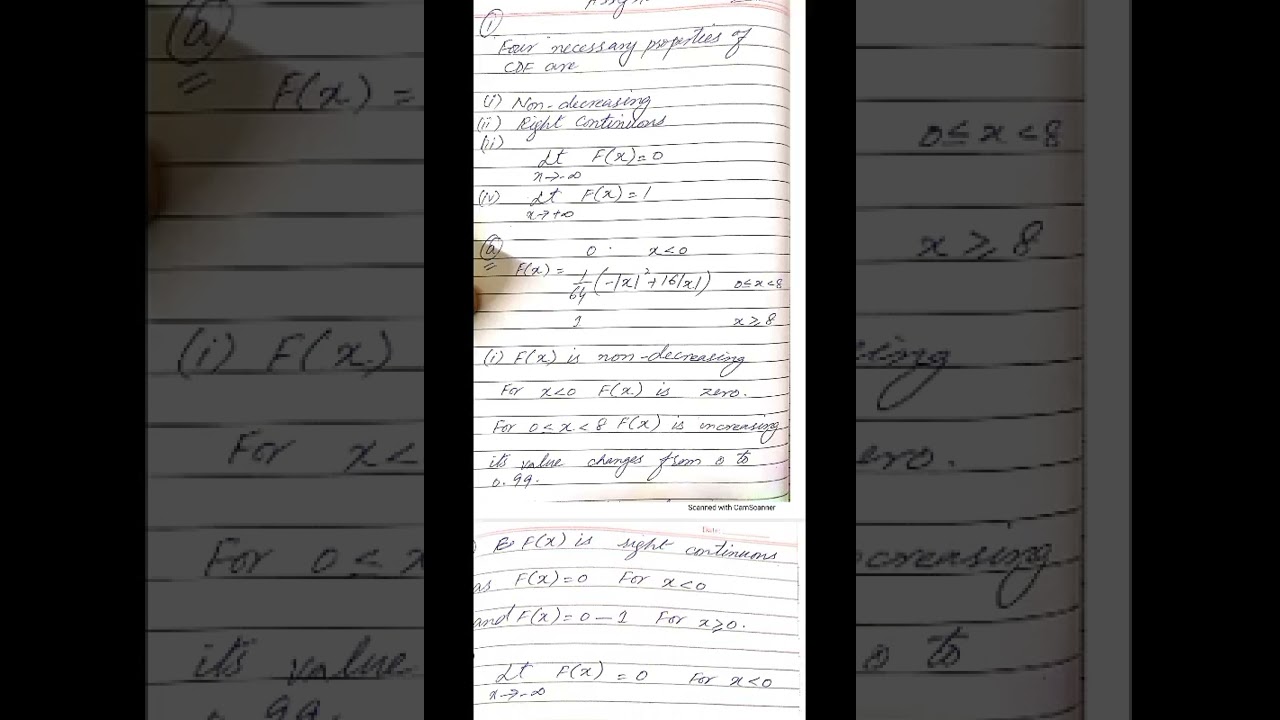 ①
Four necessary properties of
CDF are
(i) Non-decreasing
(ii) Right Continuous
(iii)
Lt F(x)=0
x→-∞
(iv) Lt F(x)=1
x→+∞
ⓐ 0 x<0
F(x) = 1/64 (-|x|²+16|x|) 0≤x<8
1 x≥8
(i) F(x) is non-decreasing
For x<0 F(x) is zero.
For 0≤x<8 F(x) is increasing
its value changes from 0 to
0.99.
Scanned with CamScanner
Date:
F(x) is right continuous
as F(x)=0 For x<0
and F(x)=0-1 For x≥0.
Lt F(x) = 0 For x<0
x→-∞